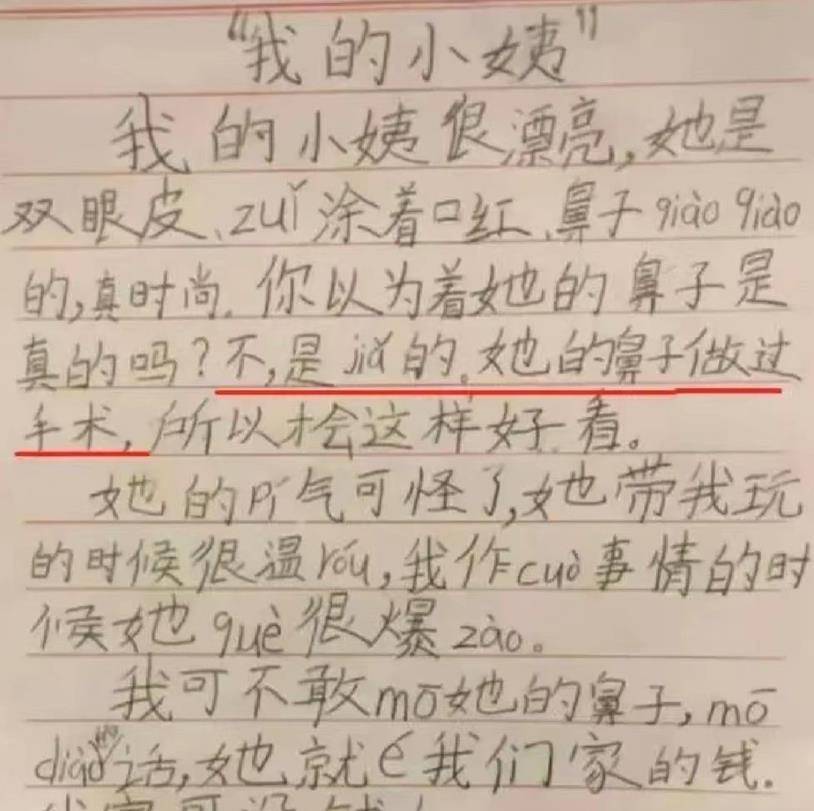 “我的小姨”
我的小姨很漂亮,她是
双眼皮、zuǐ涂着口红、鼻子qiào qiào
的,真时尚.你以为着她的鼻子是
真的吗?不,是jiǎ的.她的鼻子做过
手术,所以才会这样好看。
她的pí气可怪了,她带我玩
的时候很温róu,我作cuò事情的时
候她què很爆zào。
我可不敢mō她的鼻子,mō
diào话,她就é我们家的钱.